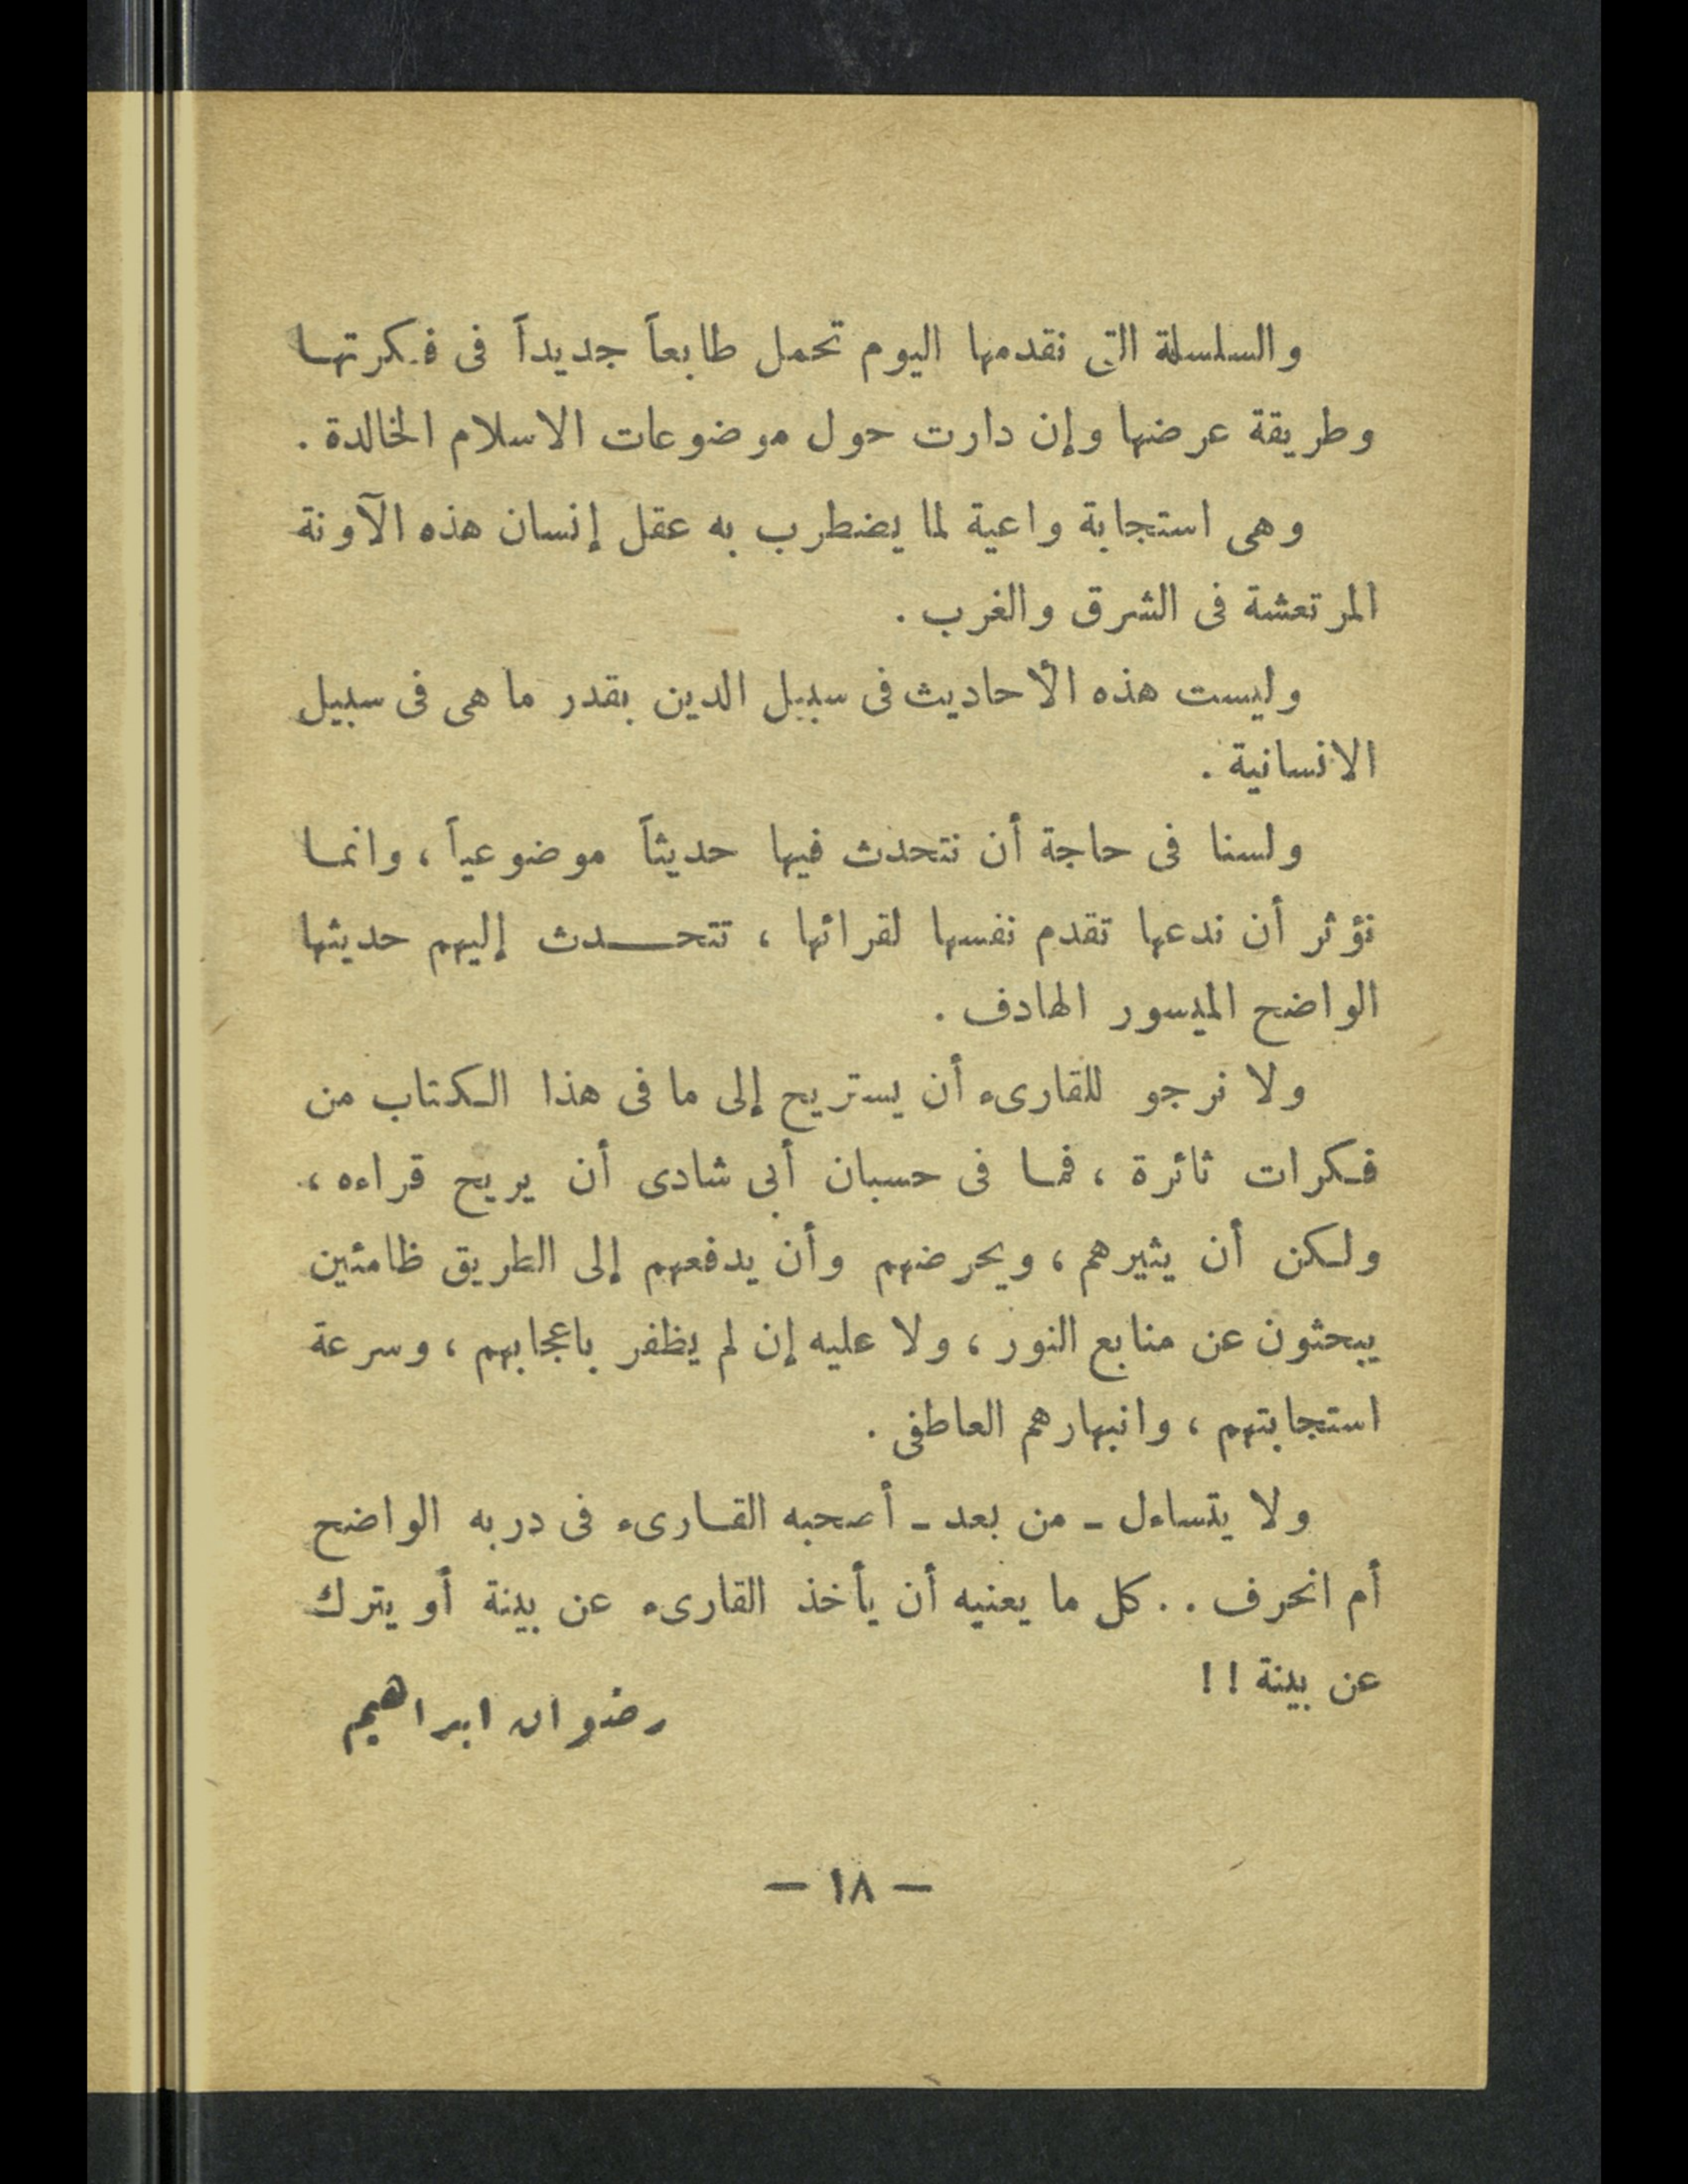 والسلسلة التى نقدمها اليوم تحمل طابعاً جديداً فى فكرتها
وطريقة عرضها وإن دارت حول موضوعات الاسلام الخالدة .
وهى استجابة واعية لما يضطرب به عقل إنسان هذه الآونة
المرتعشة فى الشرق والغرب .
وليست هذه الأحاديث فى سبيل الدين بقدر ما هى فى سبيل
الانسانية .
ولسنا فى حاجة أن نتحدث فيها حديثاً موضوعياً ، وانما
نؤثر أن ندعها تقدم نفسها لقرائها ، تتحدث إليهم حديثها
الواضح الميسور الهادف .
ولا نرجو للقارىء أن يستريح إلى ما فى هذا الكتاب من
فكرات ثائرة ، فما فى حسبان أبى شادى أن يريح قراءه ،
ولكن أن يثيرهم ، ويحرضهم وأن يدفعهم إلى الطريق ظامئين
يبحثون عن منابع النور ، ولا عليه إن لم يظفر باعجابهم ، وسرعة
استجابتهم ، وانبهارهم العاطفى .
ولا يتساءل ــ من بعد ــ أصحبه القارىء فى دربه الواضح
أم انحرف . . كل ما يعنيه أن يأخذ القارىء عن بينة أو يترك
عن بينة ! !
رضوان ابراهيم
— ١٨ —